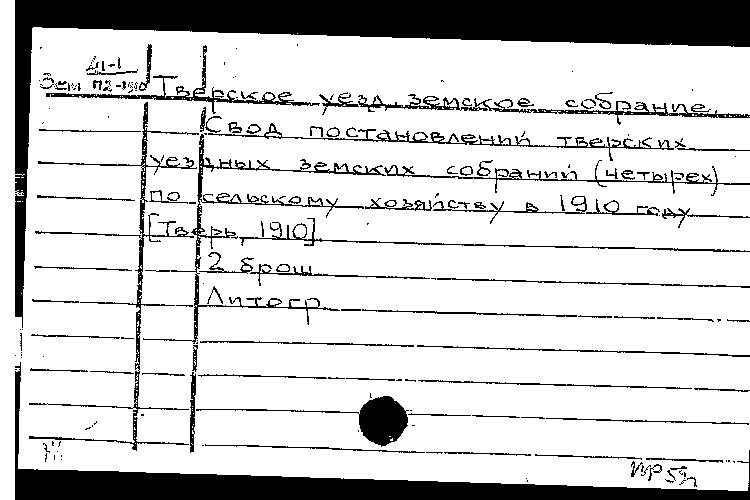 41-1
Зем П2-1910
Тверское уезд. земское собрание.
Свод постановлений тверских
уездных земских собраний (четырех)
по сельскому хозяйству в 1910 году
[Тверь, 1910].
2 брош.
Литогр.